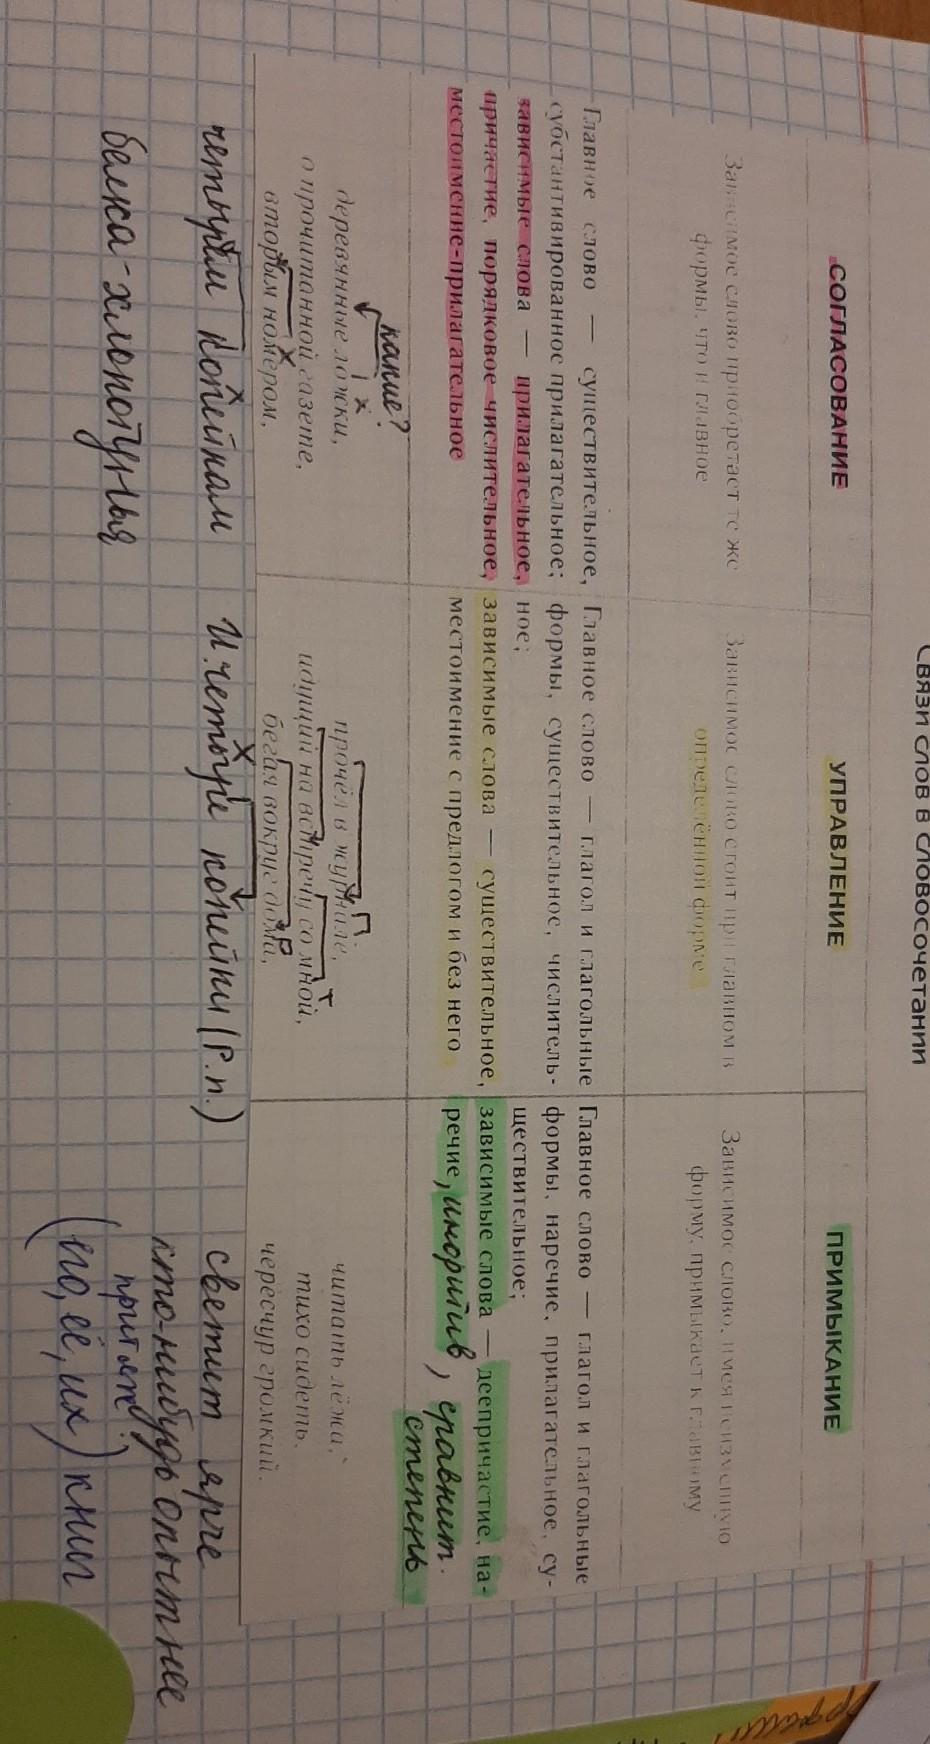 Связи слов в словосочетании
СОГЛАСОВАНИЕ
Зависимое слово приобретает те же
формы, что и главное
Главное слово — существительное,
субстантивированное прилагательное;
зависимые слова — прилагательное,
причастие, порядковое числительное,
местоимение-прилагательное
какие?
х
деревянные ложки,
о прочитанной газете,
вторым номером,
х
четырём копейкам
х
белка-хлопотунья
УПРАВЛЕНИЕ
Зависимое слово стоит при главном в
определённой форме
Главное слово — глагол и глагольные
формы, существительное, числитель-
ное;
зависимые слова — существительное,
местоимение с предлогом и без него
П.
прочёл в журнале,
Т
идущий на встречу со мной,
Р
бегая вокруг дома,
И. четыре копейки (Р.п.)
х
ПРИМЫКАНИЕ
Зависимое слово, имея неизменную
форму, примыкает к главному
Главное слово — глагол и глагольные
формы, наречие, прилагательное, су-
ществительное;
зависимые слова — деепричастие, на-
речие, инфитив, сравнит.
степень
читать лёжа,
тихо сидеть,
чересчур громкий.
светит ярче
кто-нибудь опытнее
притяж.
(его, её, их) книги